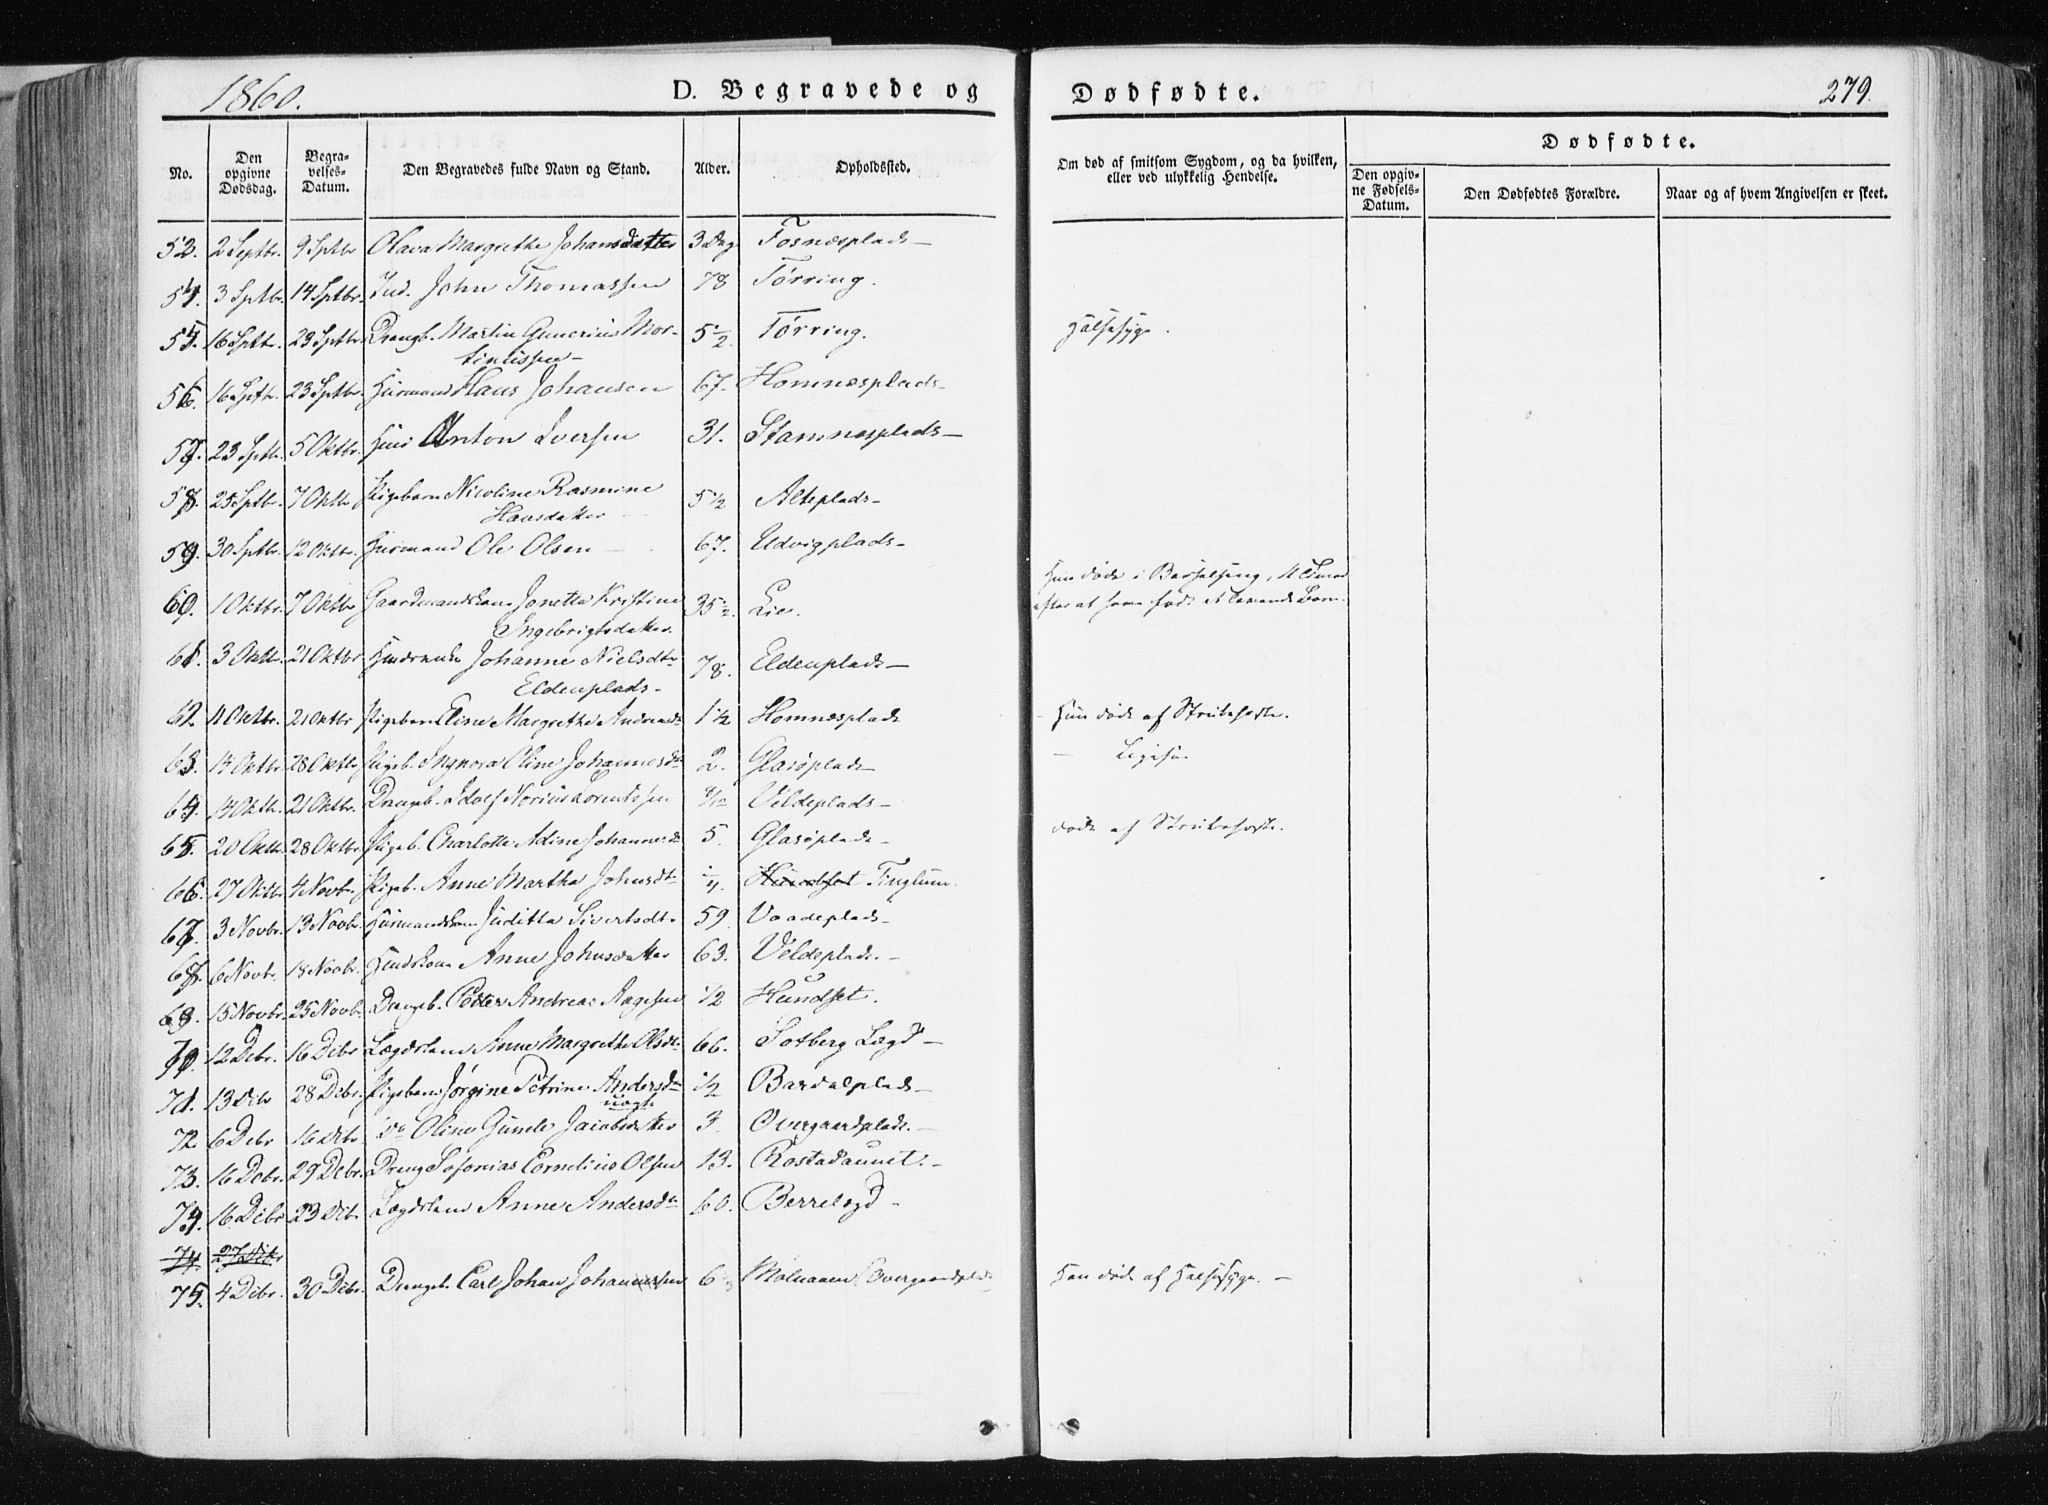 1860.
D. Begravede og
Dødfødte.
279.
No.
Den opgivne Dødsdag.
Begravelses-Datum.
Den Begravedes fulde Navn og Stand.
Alder.
Opholdssted.
Om død af smitsom Sygdom, og da hvilken, eller ved ulykkelig Hendelse.
Dødfødte.
Den opgivne Fødsels-Datum.
Den Dødfødtes Forældre.
Naar og af hvem Angivelsen er skeet.
53. 2 Septbr. 9 Sptbr Olava Margrethe Johansdatter 3 Dag Fosnæsplads
54. 3 Sptbr. 14 Sptbr. Ind. John Thomassen 78 Tørring.
55. 16 Sptbr. 23 Sptbr. Drengb. Martin Gunerius Mor- 5 1/2 Tørring. Halssyge.
tinussen
56. 16 Sptbr. 23 Sptbr Husmand Hans Johansen 67. Homnæsplads
57. 23 Sptbr. 5 Oktbr. Anton Iversen 31. Stamnesplads
58. 25 Sptbr. 7 Oktbr Pigebarn Nicoline Rasmine 5 1/2 Alteplads
Hansdatter
59. 30 Sptbr. 12 Oktbr. Husmand Ole Olsen 67. Udvigplads
60. 1 Oktbr. 7 Oktbr Gaardmandskone Jonetta Kristine 35 1/2 Lie. Hun døde i Barselseng,
Ingebrigtsdatter. efter at have født et levende Barn.
61. 3 Oktbr. 21 Oktbr Johanne Nielsdtr 78. Eldenplads
Eldenplads
62. 11 Oktbr. 21 Oktbr Pigebarn Eline Margrethe Andreasdtr 1 1/2 Homnæsplads Hun døde af Strubehoste.
63. 14 Oktbr. 28 Oktbr Pigeb. Ingnora Oline Johannesdtr 2. Glasøplads Ligesaa.
64. 14 Oktbr. 21 Oktbr. Drengeb. Adolf Norius Lorentssen Veldeplads
65. 20 Oktbr. 28 Oktbr. Pigeb. Charlotte Adine Johannesdtr 5. Glasøplads døde af Strubehoste.
66. 27 Oktbr 4 Novbr. Pigeb. Anne Martha Johnsdtr 1/4. Hundset Tinglum.
67. 3 Novbr. 13 Novbr. Husmandskone Juditta Sivertsdtr 59 Vaadeplads
68. 6 Novbr. 18 Novbr. Anne Johnsdatter 63. Veldeplads.
69. 15 Novbr. 25 Novbr. Drengeb. Petter Andreas Aagesen 1/2 Hundset.
70. 12 Debr. 16 Debr Lægdslem Anne Margrethe Olsdtr 66. Sotberg Lægd
71. 13 Debr 28 Debr. Pigebarn Jørgine Petrine Andersdtr 1/2 Bardalplads
uægte
72. 6 Debr 16 Debr. do Oline Gunele Jacobsdatter 3. Overgaardplads.
73. 16 Debr. 29 Debr. Dreng Sofonias Cornelius Olsen 13. Rostadaunet.
74. 16 Debr 23 Debr. Lægdslem Anne Andersdtr 60. Berrelægd
74. 27 Debr
75. 4 Debr. 30 Debr. Drengeb. Carl Johan Johannessen 6 Overgaardplds Han døde af Halssyge.